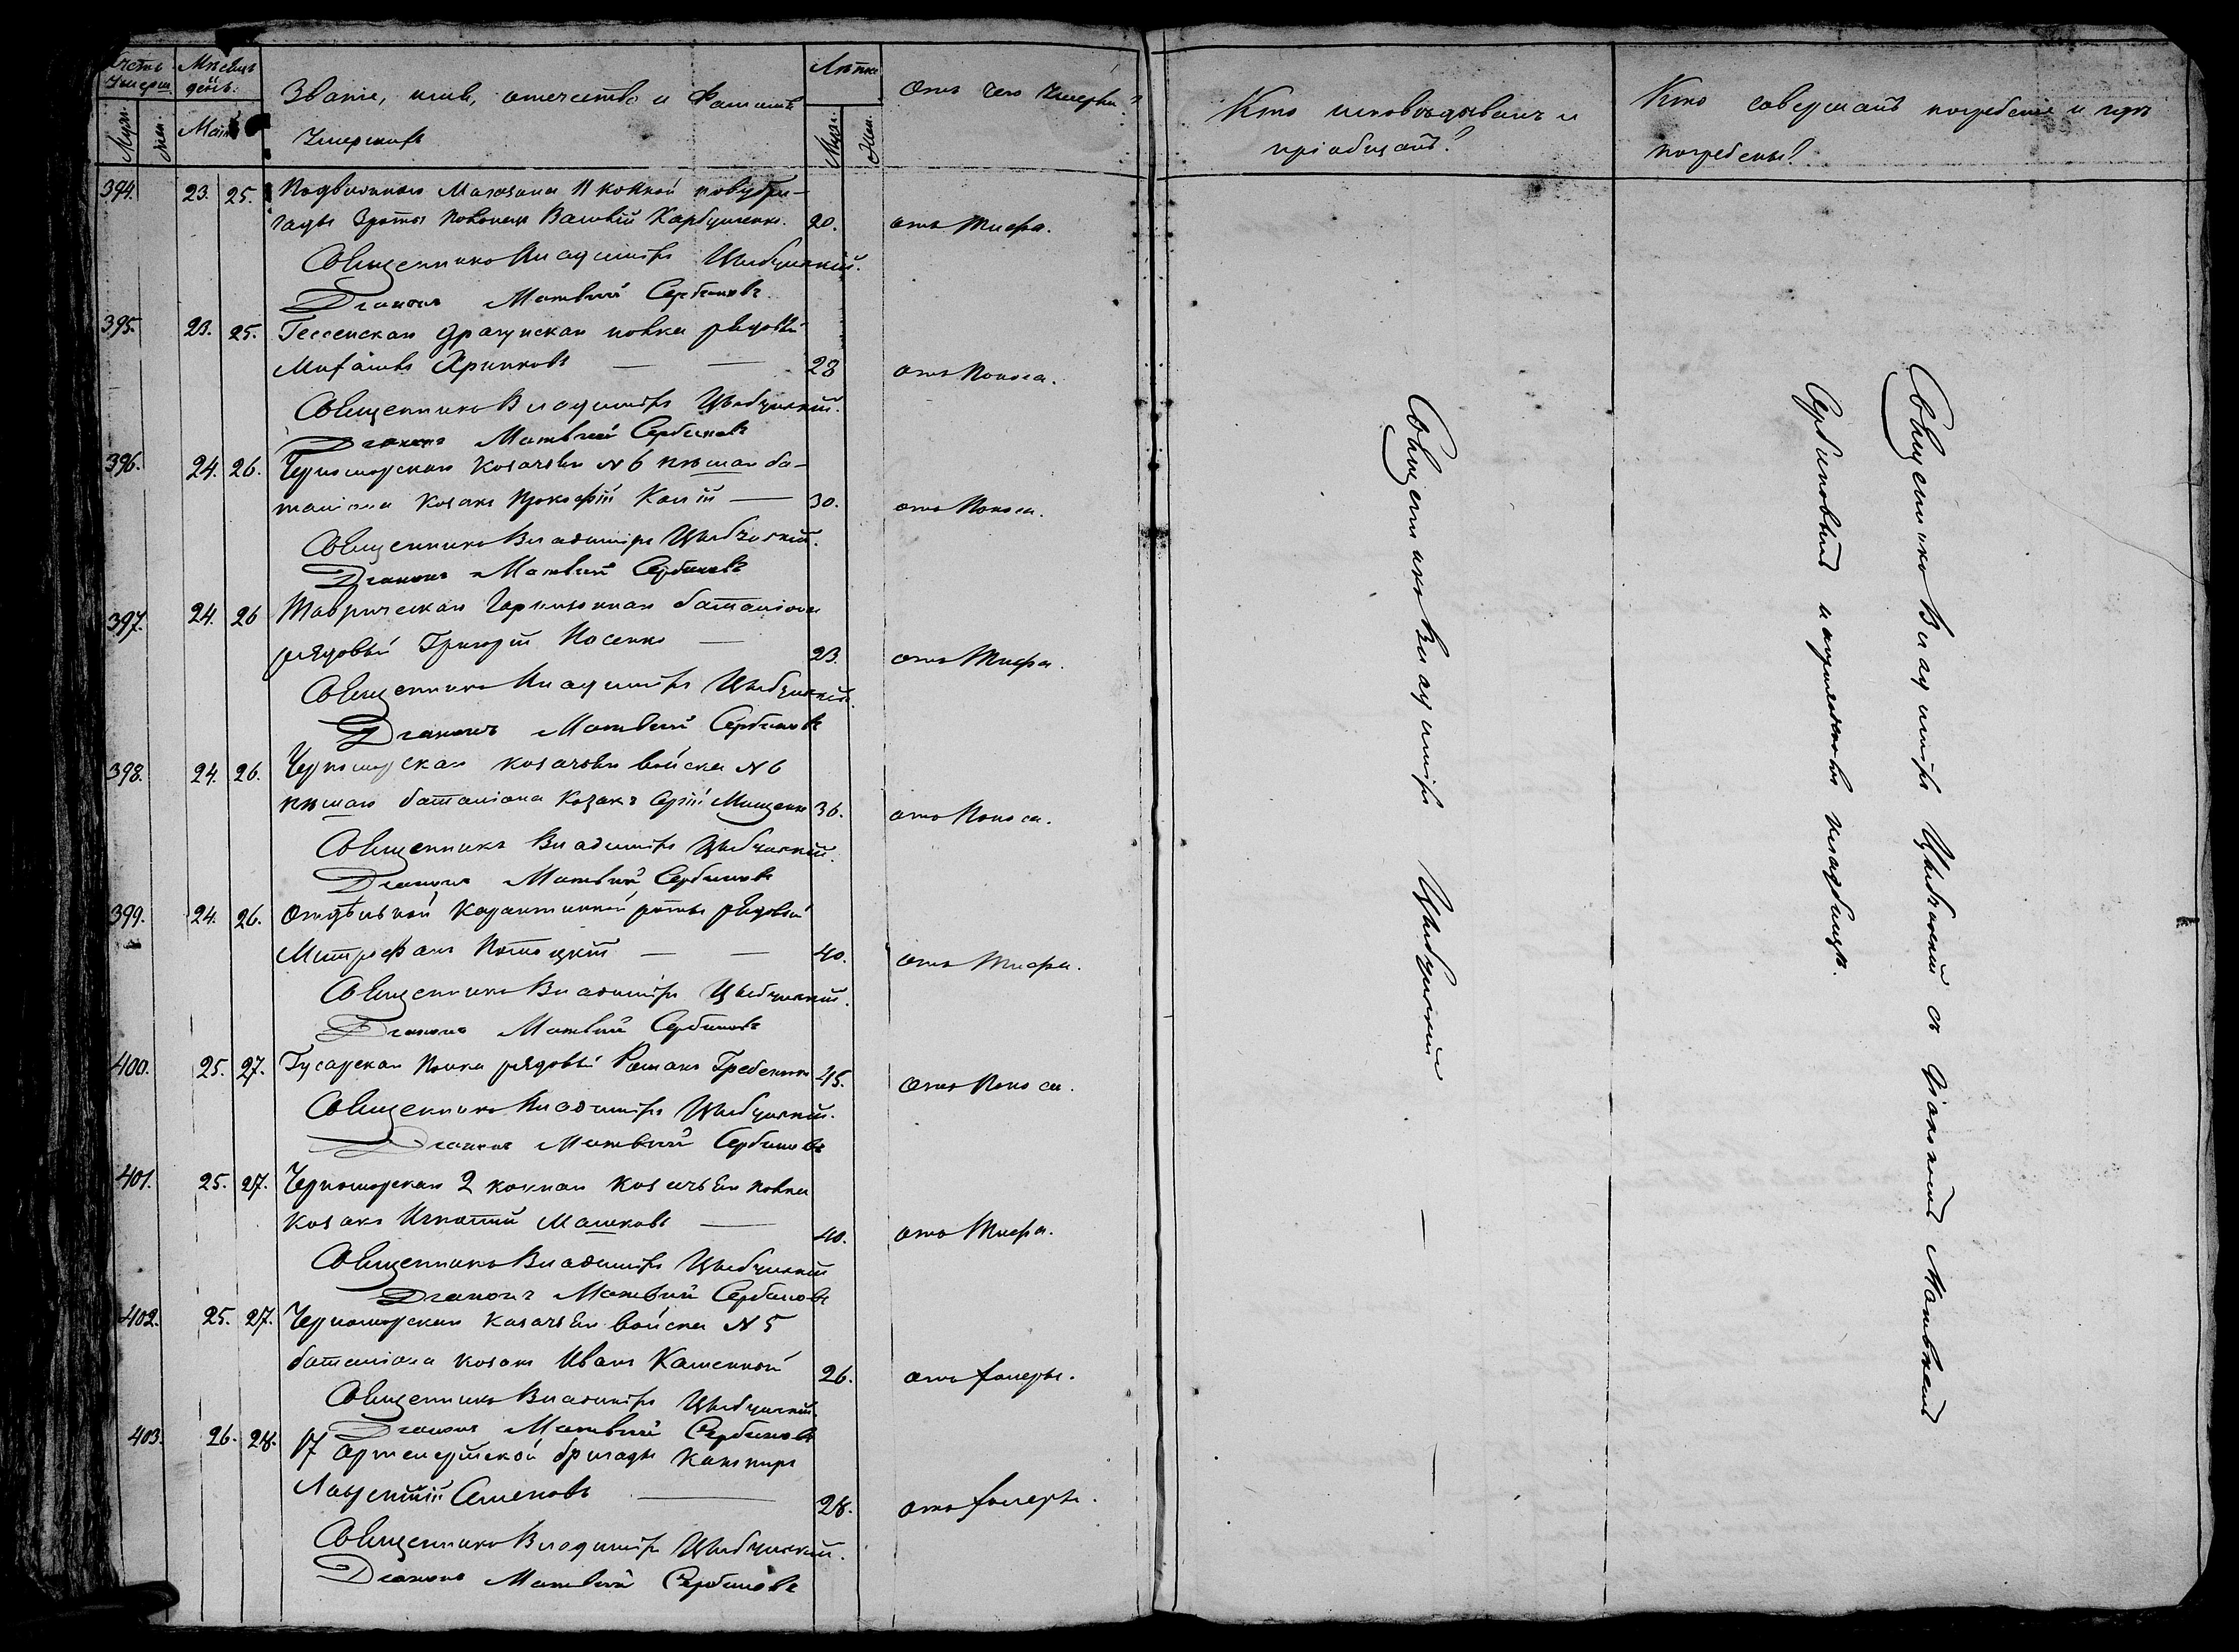 Счетъ Умерш. Мѣсяцъ и день. Званіе, имя, отчество и Фамилія Умершихъ Лѣта Отъ чего Умеръ?
Муж. Жен. Маія Муж. Жен.
Кто исповѣдывалъ и пріобщалъ?
Кто совершалъ погребеніе и гдѣ погребены?
394. 23. 25. Подвижнаго Магазина 11 конной полубри-
гады роты Василій 20. отъ Тифа.
Священникъ Владиміръ Цыбульскій.
Діаконъ Матвѣй Сербиновъ
395. 23. 25. Гессенскаго драгунскаго полка рядовый
Михаилъ Хрипковъ — — 28 отъ Поноса.
Священникъ Владиміръ Цыбульскій.
Діаконъ Матвѣй Сербиновъ
396. 24. 26. Черноморскаго козачья №6 пѣшаго ба-
таліона козакъ Прокофій Калій — 30. отъ Поноса.
Священникъ Владиміръ Цыбульскій.
Діаконъ Матвѣй Сербиновъ
397. 24. 26 Таврическаго Гарнизоннаго баталіона
рядовый Григорій Носенко — 23. отъ Тифа.
Священникъ Владиміръ Цыбульскій.
Діаконъ Матвѣй Сербиновъ
398. 24. 26. Черноморскаго козачья войска №6
пѣшаго баталіона Козакъ Сергій Мищенко 36. отъ Поноса.
Священникъ Владиміръ Цыбульскій.
Діаконъ Матвѣй Сербиновъ
399. 24. 26. Отдѣльной Карантинной роты рядовый
Митрофанъ Потоцкій — — 40. отъ Тифа.
Священникъ Владиміръ Цыбульскій.
Діаконъ Матвѣй Сербиновъ
400. 25. 27. Гусарскаго Полка рядовый Романъ 45. отъ Поноса.
Священникъ Владиміръ Цыбульскій.
Діаконъ Матвѣй Сербиновъ
401. 25. 27. Черноморскаго 2 коннаго козачья полка
козакъ Игнатій Машковъ — 40. отъ Тифа.
Священникъ Владиміръ Цыбульскій
Діаконъ Матвѣй Сербиновъ
402. 25. 27. Черноморскаго козачья войска №5
баталіона козакъ Иванъ Каменной 26. отъ холеры.
Священникъ Владиміръ Цыбульскій.
Діаконъ Матвѣй Сербиновъ
403. 26. 28. 17 Артилерійской бригады Канониръ
Лаврентій Семеновъ — 28. отъ холеры.
Священникъ Владиміръ Цыбульскій.
Діаконъ Матвѣй Сербиновъ
Священникъ Владиміръ Цыбульскій — —
Священникъ Владиміръ Цыбульскій съ діакономъ Матвѣемъ
Сербиновымъ на кладбищѣ.